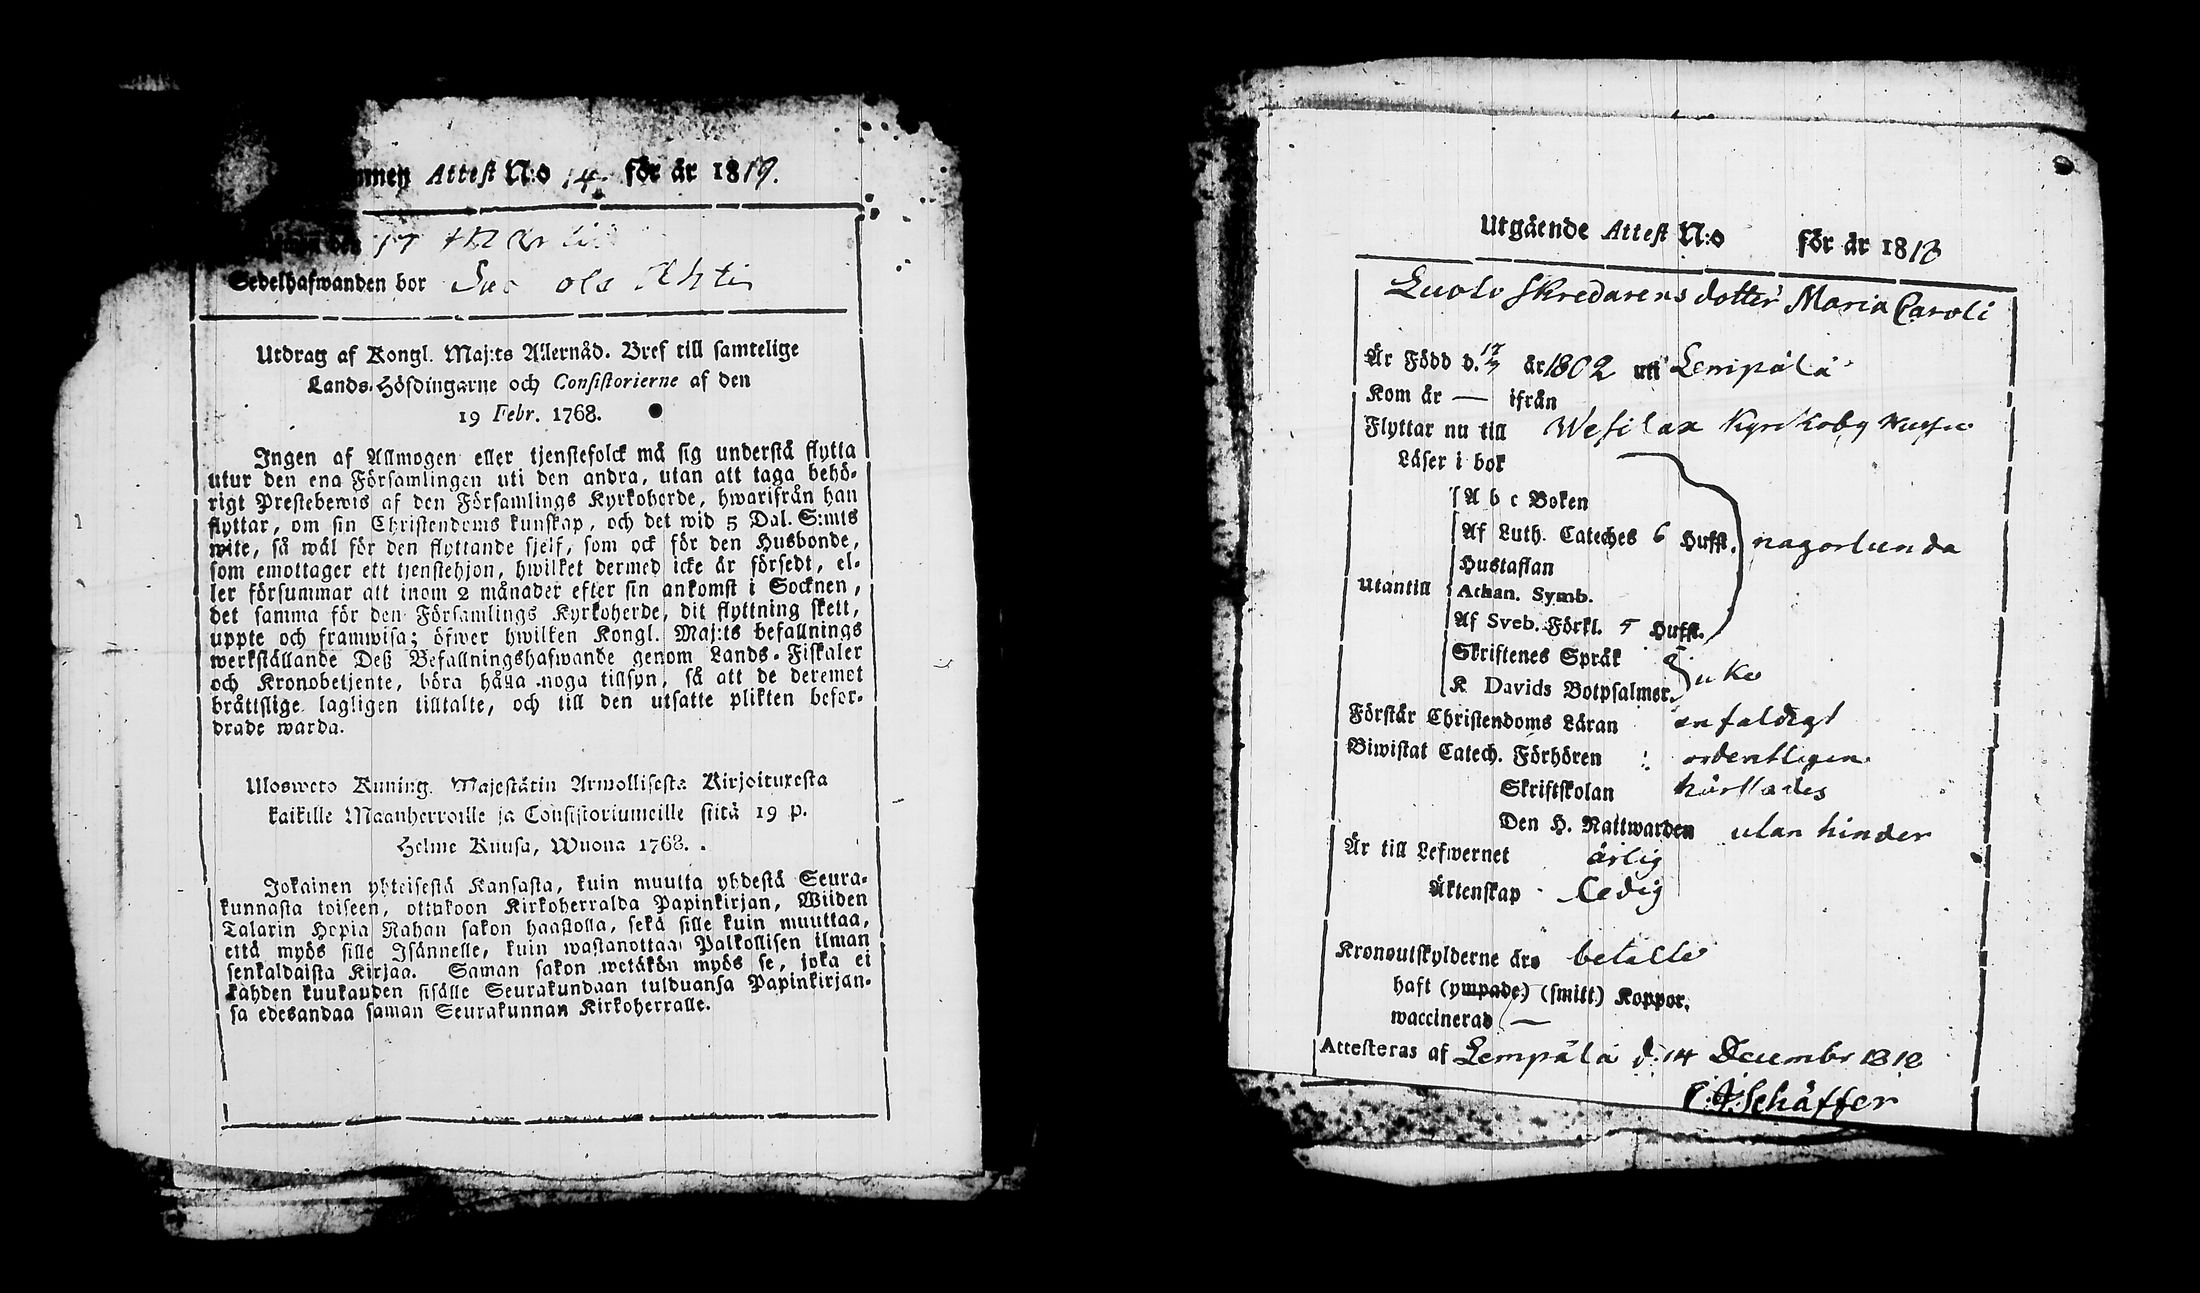 Attest N:o 14. för år 1819.
17
Sedelhafwanden bor
Utdrag af Kongl. Maj:ts Allernåd. Bref till samtelige
Lands-Höfdingarne och Consistorierne af den
19 Febr. 1768.
Ingen af Allmogen eller tjenstefolck må sig understå flytta
utur den ena Församlingen uti den andra, utan att taga behö-
rigt Prestebewis af den Församlings Kyrkoherde, hwarifrån han
flyttar, om sin Christendoms kunskap, och det wid 5 Dal. S:mts
wite, så wäl för den flyttande sjelf, som ock för den Husbonde,
som emottager ett tjenstehjon, hwilket dermed icke är försedt, el-
ler försummar att inom 2 månader efter sin ankomst i Socknen,
det samma för den Församlings Kyrkoherde, dit flyttning skett,
uppte och framwisa; öfwer hwilken Kongl. Maj:ts befallnings
werkställande Deß Befallningshafwande genom Lands-Fiskaler
och Kronobetjente, böra hålla noga tillsyn, så att de deremot
bråttslige lagligen tilltalte, och till den utsatte plikten befor-
drade warda.
Ulosweto Kuning. Majestätin Armollisesta Kirjoituxesta
kaikille Maanherroille ja Consistoriumeille siitä 19 p.
Helme Kuusa, Wuona 1768.
Jokainen yhteisestä Kansasta, kuin muutta yhdestä Seura-
kunnasta toiseen, ottakoon Kirkoherralda Papinkirjan, Wiiden
Talarin Hopia Rahan sakon haastolla, sekä sille kuin muuttaa,
että myös sille Isännelle, kuin wastanottaa Palkollisen ilman
senkaldaista Kirjaa. Saman sakon wetäkön myös se, joka ei
kahden kuukauden sisälle Seurakundaan tulduansa Papinkirjan-
sa edesandaa saman Seurakunnan Kirkoherralle.
Utgående Attest N:o för år 1818
Skredarens dotter Maria Caroli
Är Född d. 17/7 år 1802 uti Lempälä
Kom år — ifrån
Flyttar nu till Wesilax Kyrkoby
Läser i bok
A b c Boken
Af Luth. Cateches 6 Hufst. nagorlunda
Hustaflan
Utantill Athan. Symb.
Af Sveb. Förkl. 5 Hufst.
Skriftenes Språk
K Davids Botpsalmer.
Förstår Christendoms Läran enfaldigt
Biwistat Catech. Förhören ordentligen
Skriftskolan
Den H. Nattwarden utan hinder
Är till Lefwernet ärlig
Äktenskap Ledig
Kronoutskylderne äro betalte
haft (ympade) (smitt) Koppor.
waccinerad —
Attesteras af Lempälä d. 14 Decembr 1818
C. J. Schäffer